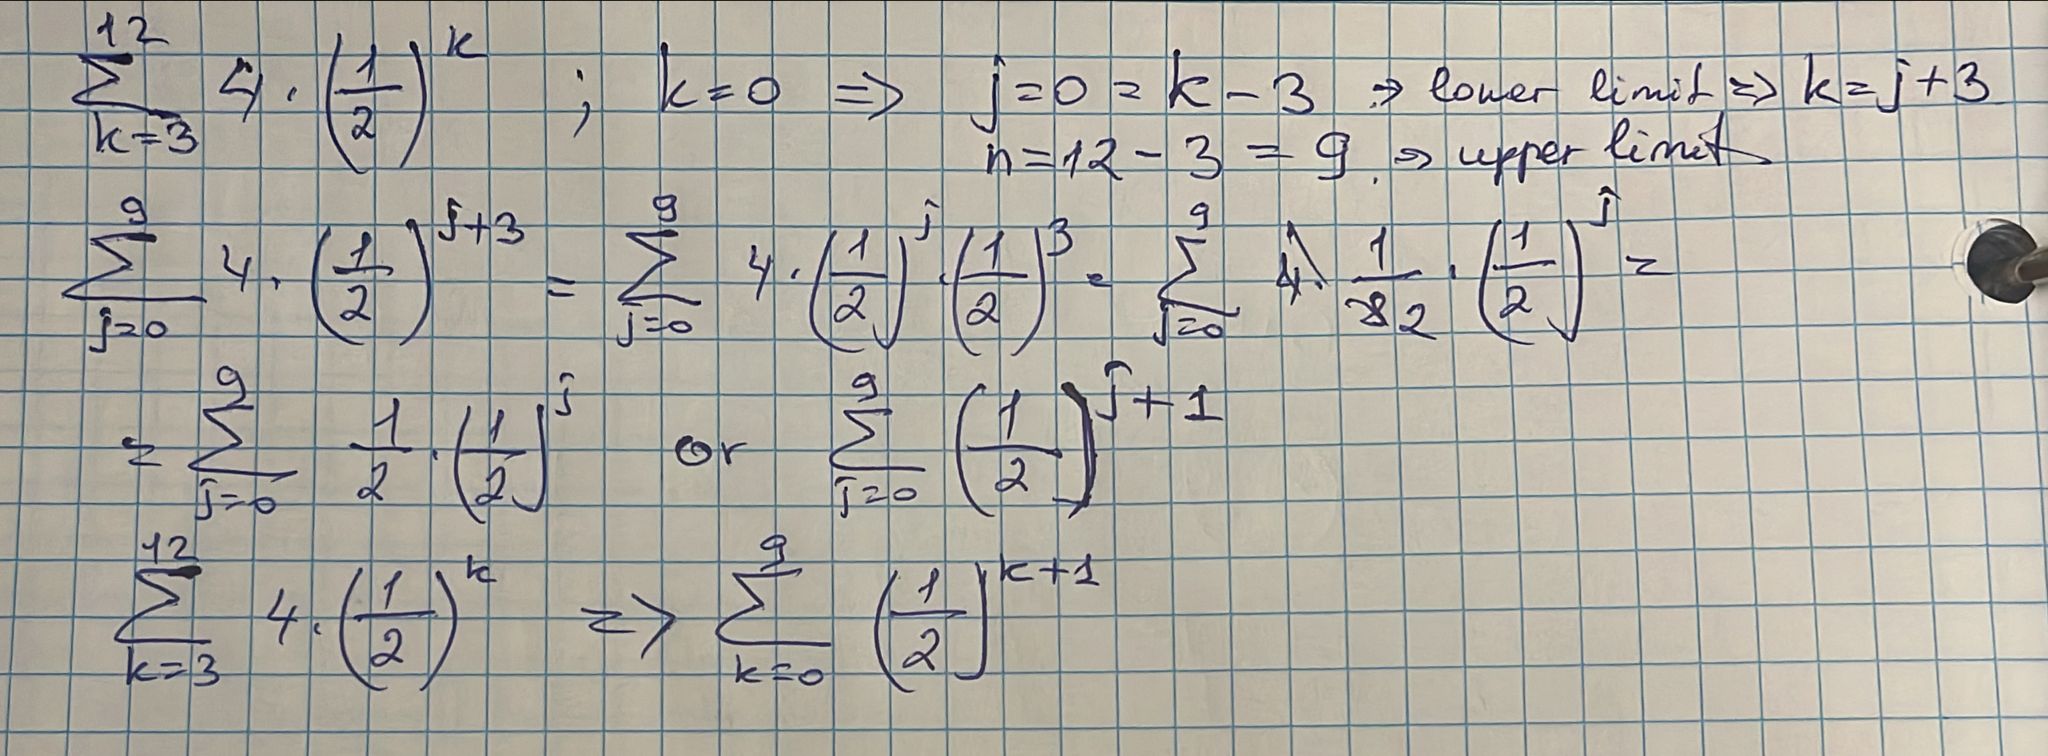 \sum_{k=3}^{12} 4 \cdot \left(\frac{1}{2}\right)^k ; k=0 => j=0=k-3 => lower limit => k=j+3
n=12-3=9. => upper limit
\sum_{j=0}^{9} 4 \cdot \left(\frac{1}{2}\right)^{j+3} = \sum_{j=0}^{9} 4 \cdot \left(\frac{1}{2}\right)^j \cdot \left(\frac{1}{2}\right)^3 = \sum_{j=0}^{9} \cancel{4} \cdot \frac{1}{\cancel{8} 2} \cdot \left(\frac{1}{2}\right)^j =
= \sum_{j=0}^{9} \frac{1}{2} \cdot \left(\frac{1}{2}\right)^j or \sum_{j=0}^{9} \left(\frac{1}{2}\right)^{j+1}
\sum_{k=3}^{12} 4 \cdot \left(\frac{1}{2}\right)^k => \sum_{k=0}^{9} \left(\frac{1}{2}\right)^{k+1}